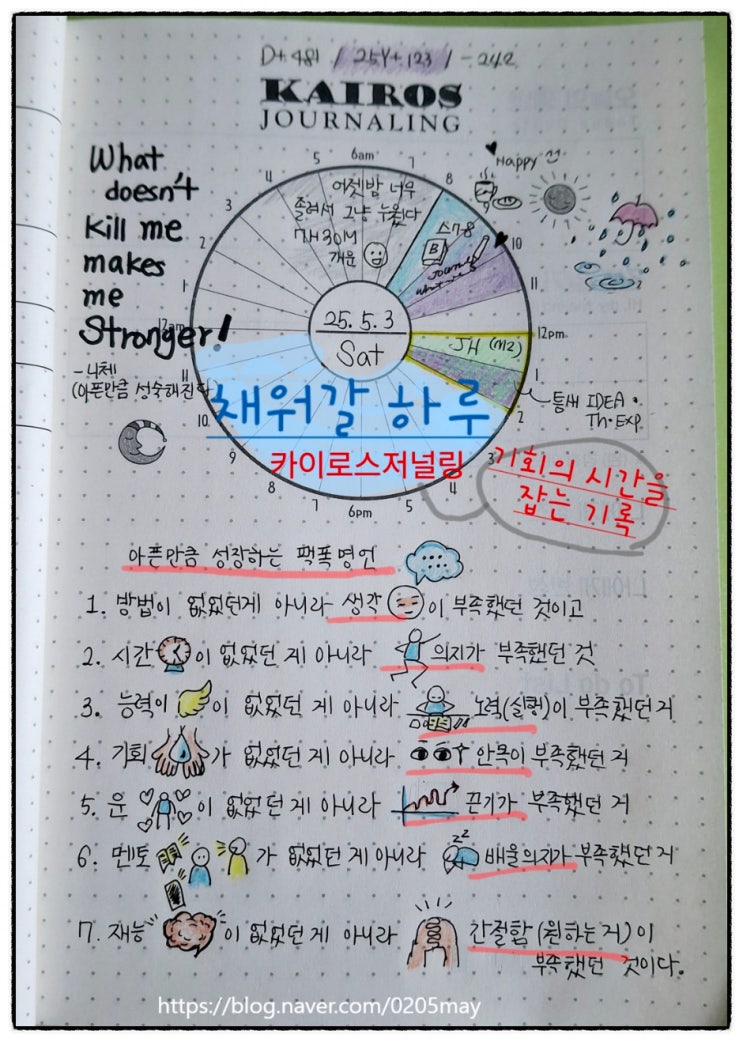 D+481 / 25Y+123 / -242
KAIROS
JOURNALING
What
doesn't
kill me
makes
me
Stronger!
-니체
(아픈만큼 성숙해진다)
6am
7
8
10
11
12pm
1
2
3
4
5
6pm
7
8
9
10
11
12am
1
2
3
4
5
어젯밤 너무
졸려서 그냥 누웠다
7H 30M
개운
Happy
B
JH (M2)
틈새 IDEA.
Th.Exp.
25.5.3
Sat
채워갈 하루
카이로스저널링
기회의 시간을
잡는 기록
아픈만큼 성장하는 팩폭명언
1. 방법이 없었던게 아니라 생각이 부족했던 것이고
2. 시간이 없었던 게 아니라 의지가 부족했던 것
3. 능력이 이 없었던 게 아니라 노력(실행)이 부족했던 거
4. 기회가 없었던 게 아니라 안목이 부족했던 거
5. 운이 없었던 게 아니라 끈기가 부족했던 거
6. 멘토가 없었던 게 아니라 배울의지가 부족했던 거
7. 재능이 없었던 게 아니라 간절함(원하는거)이
부족했던 것이다.
https://blog.naver.com/0205may